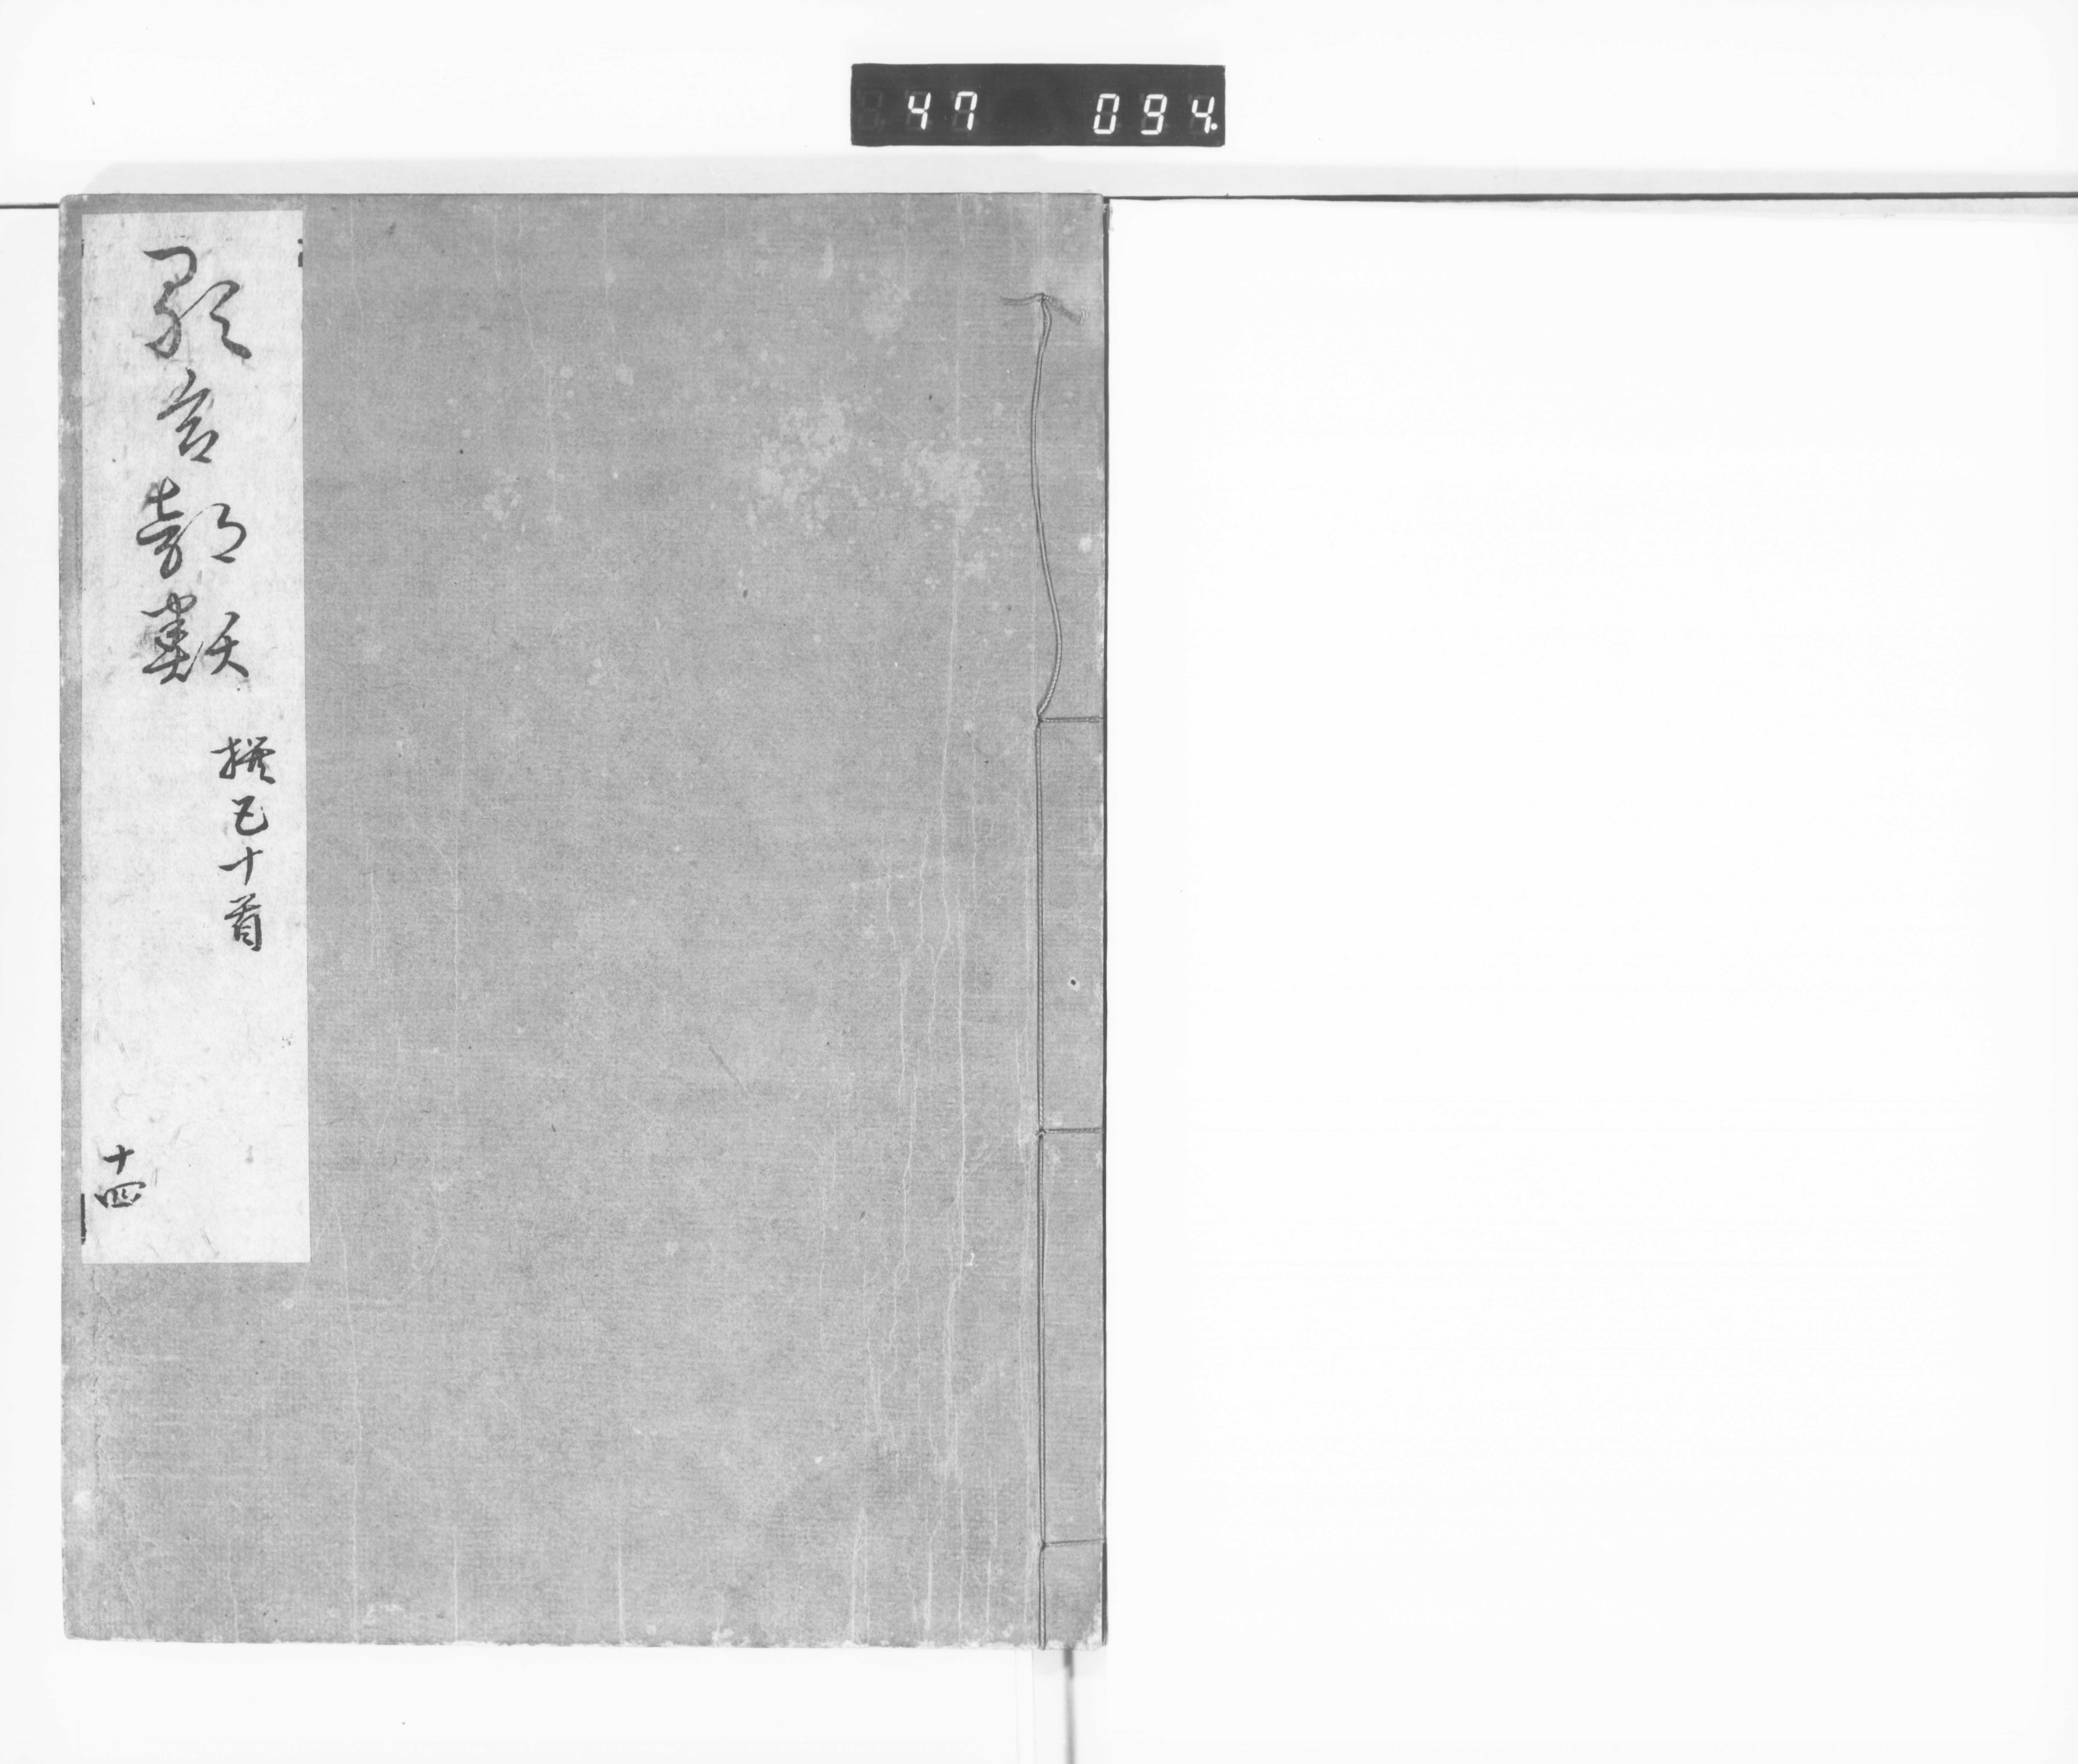 47 094
歌合部類
撰五十首
十四